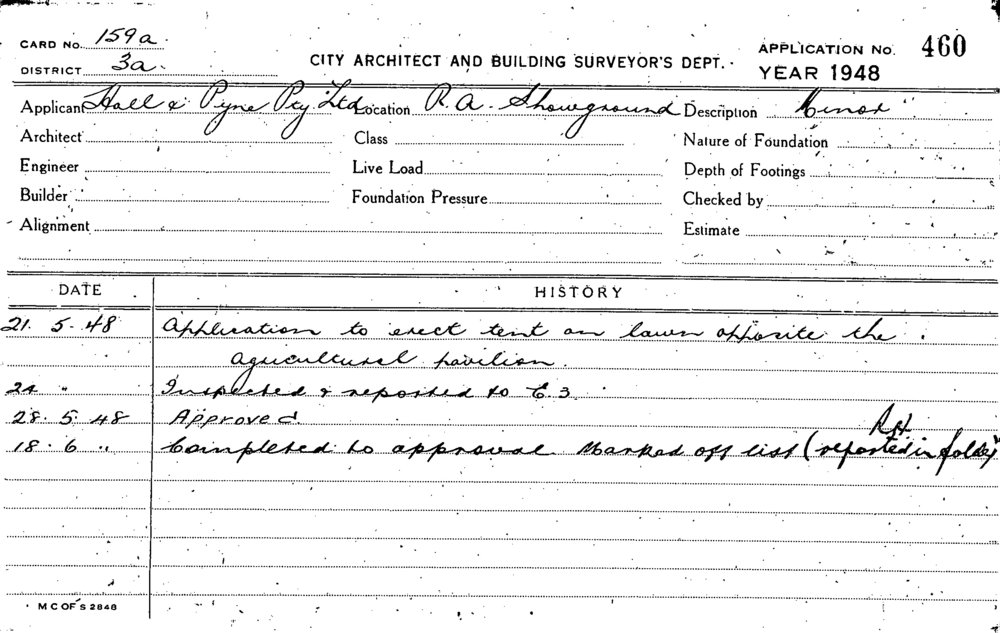 CARD No. 159a.
DISTRICT 3a.
CITY ARCHITECT AND BUILDING SURVEYOR'S DEPT.
APPLICATION No. 460
YEAR 1948
Applicant Hall & Pyne Pty Ltd. Location R.A. Showground Description Minor
Architect Class Nature of Foundation
Engineer Live Load Depth of Footings
Builder Foundation Pressure Checked by
Alignment Estimate
DATE HISTORY
21. 5. 48 Application to erect tent on lawn opposite the
agricultural pavilion.
24 " Inspected & reported to E.3.
28. 5. 48 Approved.
18. 6 " Completed to approval Marked off list (reported in folder)
M C OF S 2848